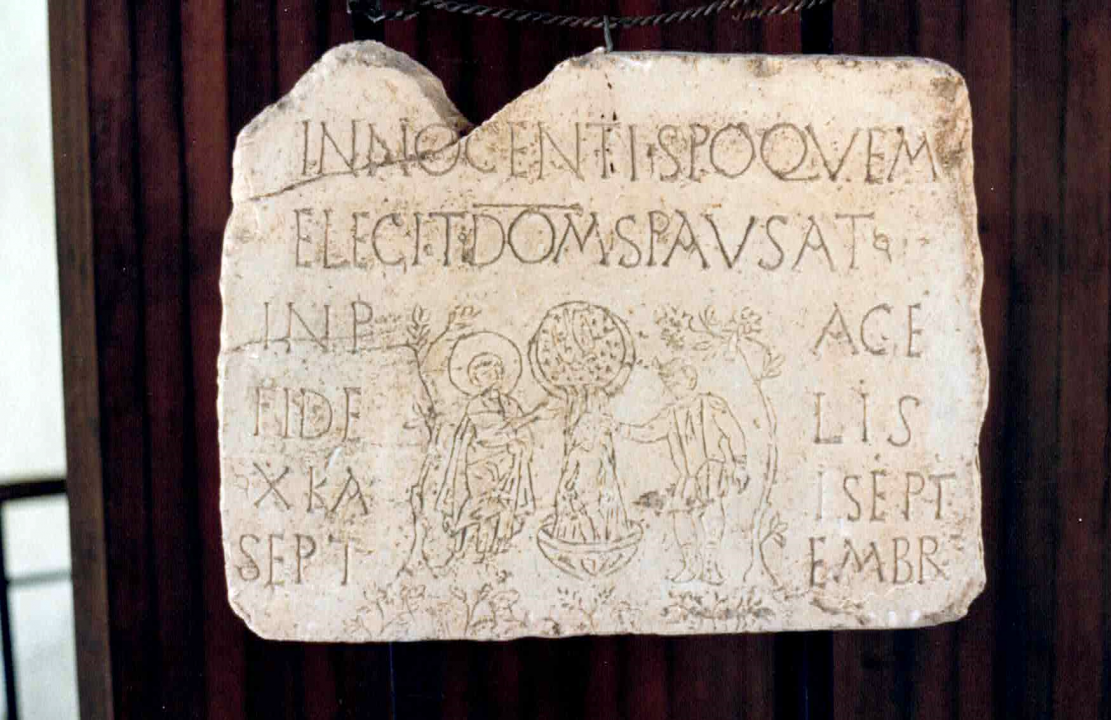 INNOCENTI SPO QVEM
ELEGIT DOMS PAVSAT
IN P ACE
FIDE LIS
X KA ISEPT
SEPT EMBR